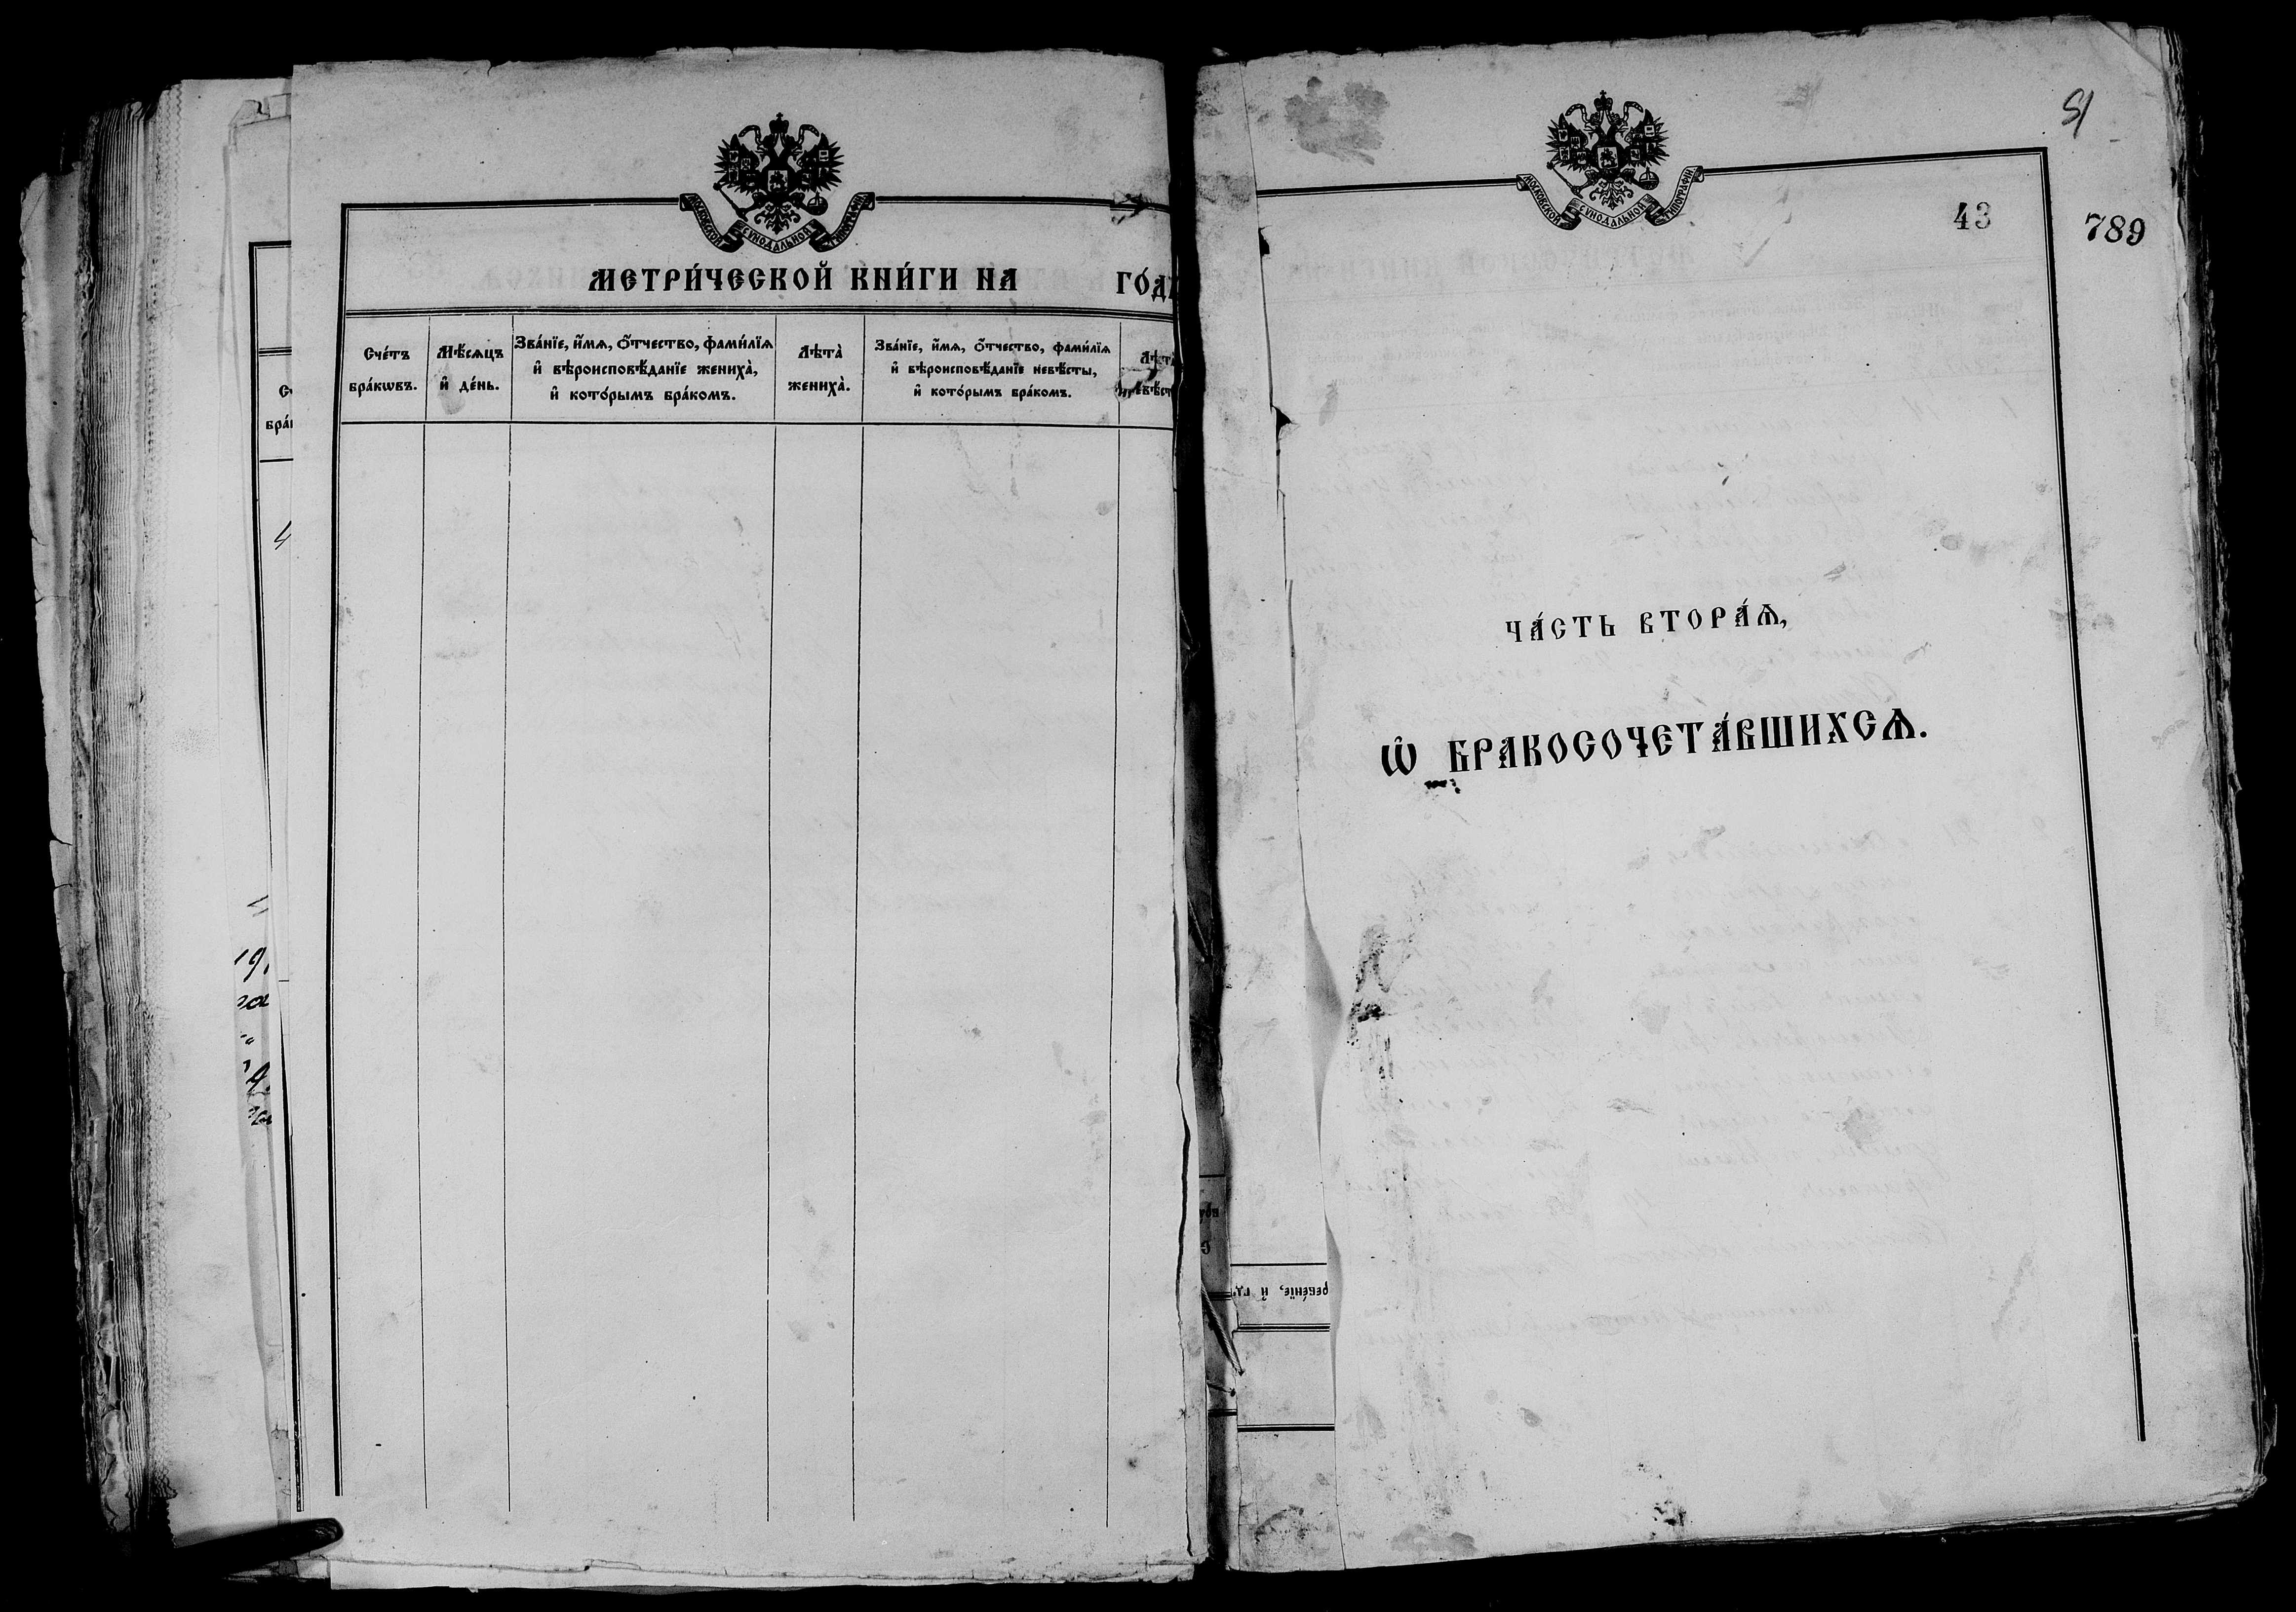 МОСКОВСКОЙ СѴНОДАЛЬНОЙ ТИПОГРАФІИ
МЕТРИ́ЧЕСКОЙ КНИ́ГИ НА ГО́ДЪ
Сче́тъ бра́кѡвъ.
Мѣ́сѧцъ и҆ де́нь.
Зва́нїе, и҆́мѧ, ѻ҆́тчество, фами́лїѧ
и҆ вѣроисповѣ́данїе жениха̀,
и҆ кото́рымъ бра́комъ.
Лѣта̀ жениха̀.
Зва́нїе, и҆́мѧ, ѻ҆́тчество, фами́лїѧ
и҆ вѣроисповѣ́данїе невѣ́сты,
и҆ кото́рымъ бра́комъ.
Лѣта̀
4
МОСКОВСКОЙ СѴНОДАЛЬНОЙ ТИПОГРАФІИ
51
43
789
ЧА́СТЬ ВТОРА́Ѧ,
Ѡ҆ БРАКОСОЧЕТА́ВШИХСѦ.